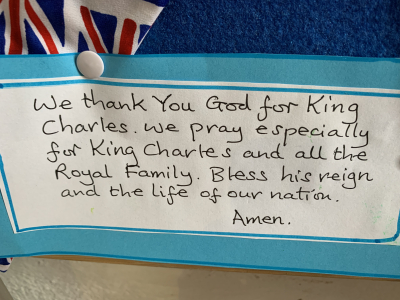 We thank You God for King
Charles. We pray especially
for King Charles and all the
Royal Family. Bless his reign
and the life of our nation.
Amen.